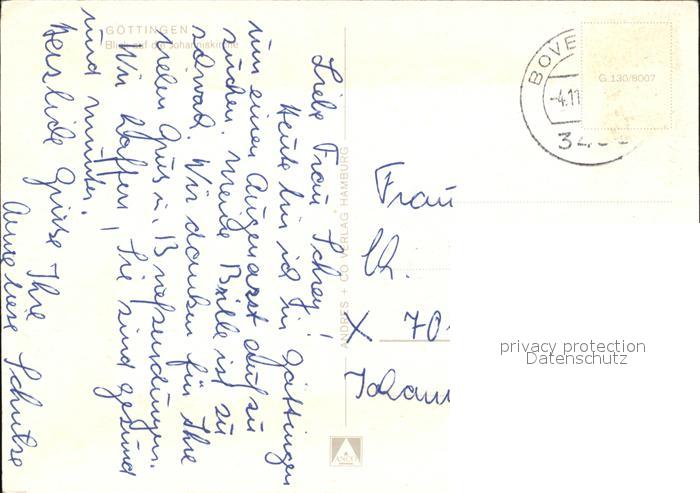 GÖTTINGEN
Blick auf die Johanniskirche
Liebe Frau Schrey!
Heute bin ich in Göttingen
um einen Augenarzt auf zu
suchen. meine Brille ist zu
schwach. Wir danken für Ihre
vielen Grüße u. Briefsendungen.
Wir hoffen, Sie sind gesund
und munter.
Herzliche Grüße Ihre
Anneliese Schulze
ANDRES + CO VERLAG HAMBURG
ANCO
BOVE
-4.11
34
G 130/8007
Frau
Ch.
X 70
Johann
privacy protection
Datenschutz